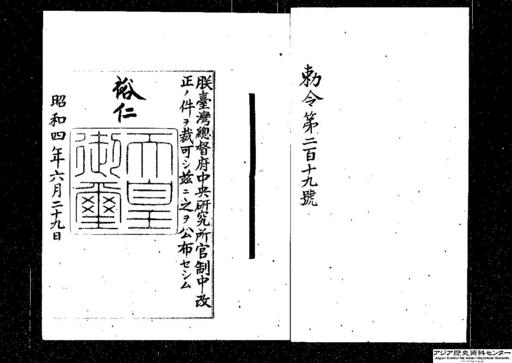 勅令第二百十九號
朕臺灣總督府中央研究所官制中改
正ノ件ヲ裁可シ茲ニ之ヲ公布セシム
裕仁
天皇
御璽
昭和四年六月二十九日
アジア歴史資料センター
Japan Center for Asian Historical Records